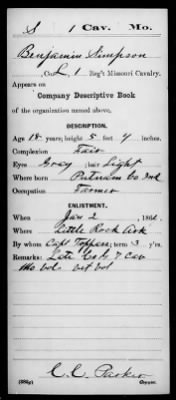 S 1 Cav. Mo.
Benjamin Simpson
, Co. L, 1 Reg't Missouri Cavalry.
Appears on
Company Descriptive Book
of the organization named above.
DESCRIPTION.
Age 18 years; height 5 feet 4 inches.
Complexion Fair
Eyes Gray; hair Light
Where born Putnam Co Ind
Occupation Farmer
ENLISTMENT.
When Jan 2, 186
Where Little Rock Ark
By whom Capt ; term 3 y'rs.
Remarks: Late Co 7 Cav
Mo Vols vet vol
C.C. Parker
Copyist.